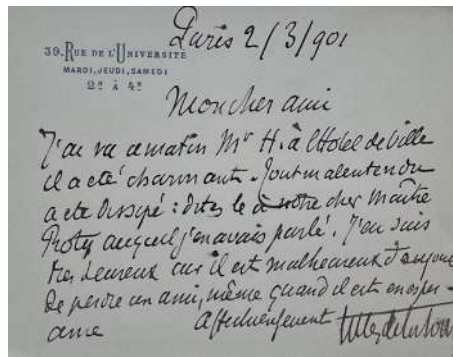 Paris 2/3/901
39. RUE DE L'UNIVERSITÉ
MARDI, JEUDI, SAMEDI
2h À 4h
Mon cher ami
J'ai vu ce matin Mr H. à l'Hôtel de Ville
il a été charmant. Tout malentendu
a été dissipé : dites le à notre cher Maître
auquel j'en avais parlé. J'en suis
très heureux car il est malheureux
de perdre un ami, même quand il est en
ame
Affectueusement